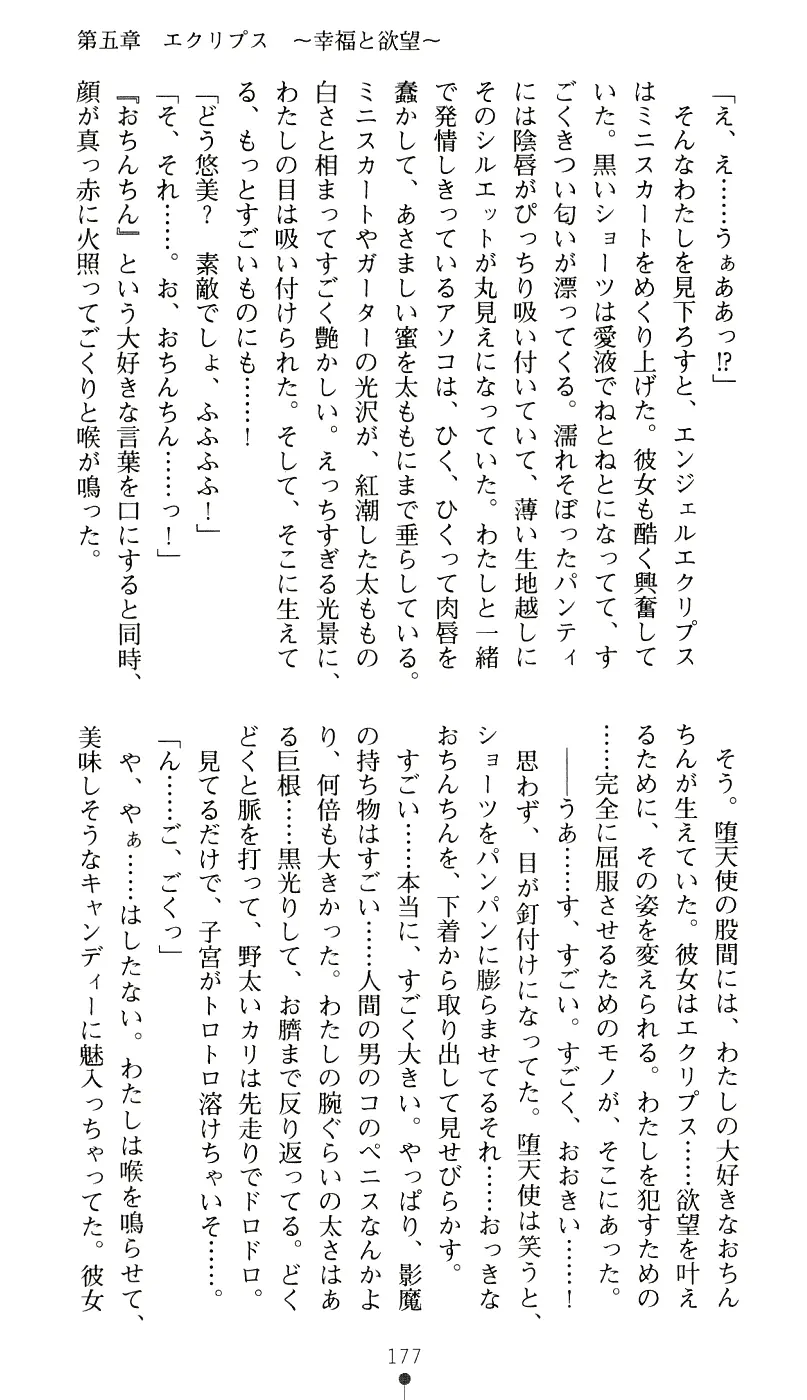 第五章　エクリプス　～幸福と欲望～
「え、え……うぁああっ!?」
　そんなわたしを見下ろすと、エンジェルエクリプス
はミニスカートをめくり上げた。彼女も酷く興奮して
いた。黒いショーツは愛液でねとねとになってて、す
ごくきつい匂いが漂ってくる。濡れそぼったパンティ
には陰唇がぴっちり吸い付いていて、薄い生地越しに
そのシルエットが丸見えになっていた。わたしと一緒
で発情しきっているアソコは、ひく、ひくって肉唇を
蠢かして、あさましい蜜を太ももにまで垂らしている。
ミニスカートやガーターの光沢が、紅潮した太ももの
白さと相まってすごく艶かしい。えっちすぎる光景に、
わたしの目は吸い付けられた。そして、そこに生えて
る、もっとすごいものにも……！
「どう悠美？　素敵でしょ、ふふふふ！」
「そ、それ……。お、おちんちん……っ！」
『おちんちん』という大好きな言葉を口にすると同時、
顔が真っ赤に火照ってごくりと喉が鳴った。
　そう。堕天使の股間には、わたしの大好きなおちん
ちんが生えていた。彼女はエクリプス……欲望を叶え
るために、その姿を変えられる。わたしを犯すための
……完全に屈服させるためのモノが、そこにあった。
　――うあ……す、すごい。すごく、おおきい……！
　思わず、目が釘付けになってた。堕天使は笑うと、
ショーツをパンパンに膨らませてるそれ……おっきな
おちんちんを、下着から取り出して見せびらかす。
　すごい……本当に、すごく大きい。やっぱり、影魔
の持ち物はすごい……人間の男のコのペニスなんかよ
り、何倍も大きかった。わたしの腕ぐらいの太さはあ
る巨根……黒光りして、お臍まで反り返ってる。どく
どくと脈を打って、野太いカリは先走りでドロドロ。
　見てるだけで、子宮がトロトロ溶けちゃいそ……。
「ん……ご、ごくっ」
　や、やぁ……はしたない。わたしは喉を鳴らせて、
美味しそうなキャンディーに魅入っちゃってた。彼女
177